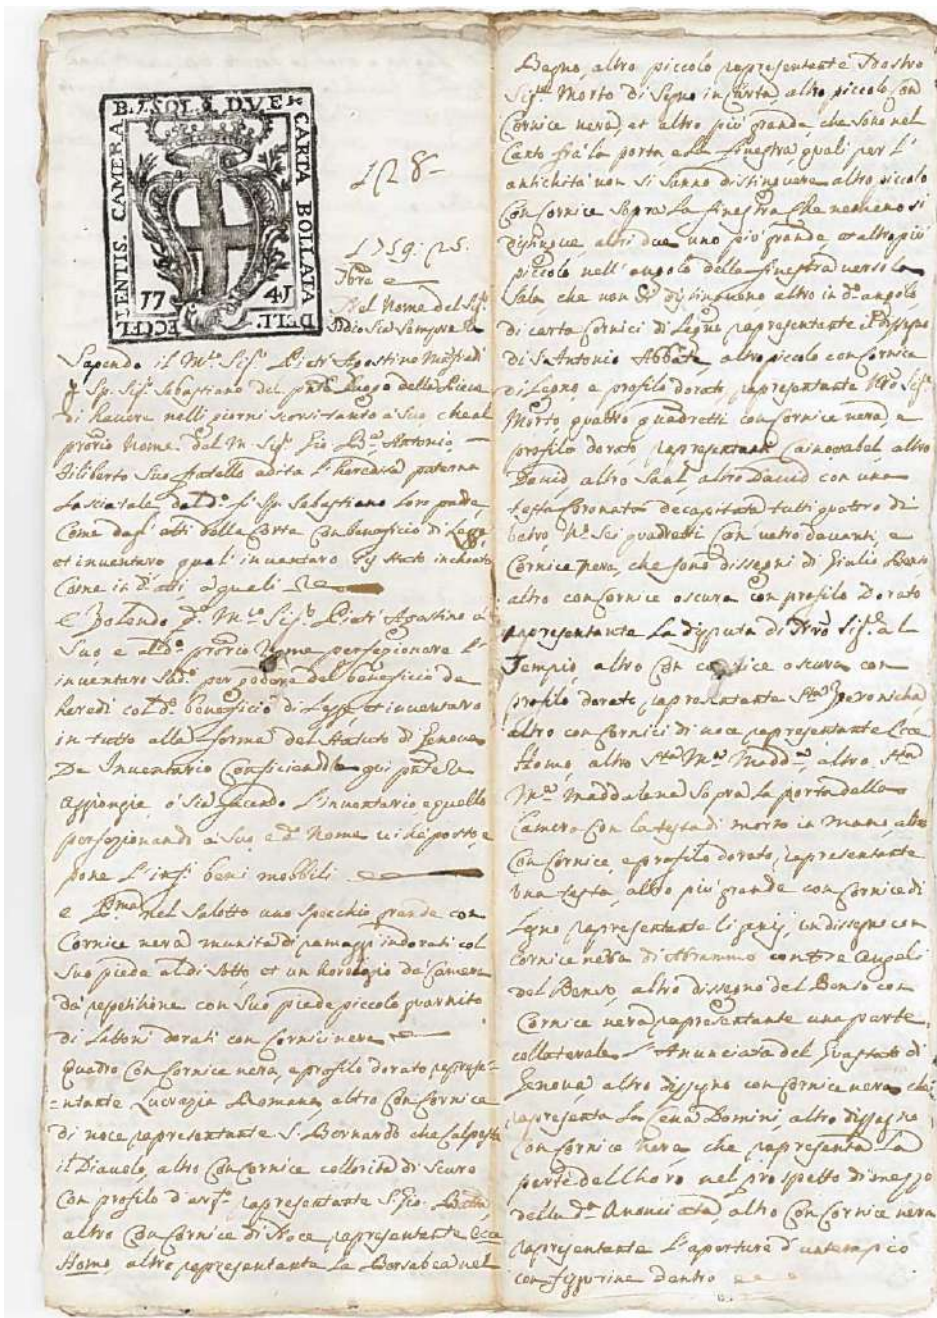 B. ZSOLA DVE
CARTA BOLLATA
DELL'
ECCELLENTIS. CAMERA
1741
128
1759: 25
Xbre
Nel Nome del Sig.r
Iddio sia sempre
Sapendo il M.co Sig.r Pietr'Agostino
q. Sp. Sig.r Sebastiano del pnte Luogo della Pieve
di Havere nelli giorni scorsi tanto a suo, che al
proprio Nome del M. Sig.r Gio Ba Antonio
Filiberto suo fratello adita l'heredità paterna
lasciatale dal d.o q. Sp. Sebastiano loro padre,
Come dagl'atti della Corte con beneficio di Legge
et inventaro qual'inventaro fù stato inchoato
Come in d.i atti, a quali
E Volendo d.o M.co Sig.r Pietr'Agostino a
suo, e al d.o proprio Nome perfezionare l'
inventaro sud.o per godere del beneficio de
heredi col d.o beneficio di Legge, et inventaro
in tutto alla forma del Statuto di Genova
De Inventario Conficiendo qui pnte
Aggiongia, ò sia facendo l'inventario, e quello
perfezionando a suo, e d.o Nome vi hà posto, e
pone l'inf.i beni mobbili
e P.ma nel Salotto uno specchio grande con
Cornice nera munita di ramaggi indorati col
suo piede al di sotto, et un horologio da Camera
da repetitione con suo piede piccolo guarnito
di lattoni dorati con Cornici nere
Quadro con Cornice nera, e profilo dorato represe-
-ntante Lucrezia Romana, altro con Cornice
di noce rapresentante S. Bernardo che calpesta
il Diavolo, altro con Cornice collorita di scuro
con profilo d'arg.to rapresentante S. Gio. Batta,
altro con Cornice di Noce rapresentante Ecce
Homo, altro rapresentante la Bersabea nel
Bagno, altro piccolo rapresentante Nostro
Sig.re Morto di Segno in Carta, altro piccolo con
Cornice nera, et altro più grande, che sono nel
Canto frà la porta, e la finestra, quali per l'
antichità non si sanno distinguere altro piccolo
con Cornice sopra la finestra che nemeno si
distingue, altri due uno più grande, et altro più
piccolo nell'angolo della finestra verso la
Sala, che non si distinguono altro in d.o angolo
di carta Cornici di Legno rapresentante il dissegno
di S. Antonio Abbate, altro piccolo con Cornice
di Legno, e profilo dorato, rapresentante Nro Sig.re
Morto, quattro quadretti con Cornice nera, e
profilo dorato, rapresentanti Caino et Abel, altro
David, altro Saul, altro David con una
testa Coronata decapitata tutti quatro di
vetro, N.o Sei quadretti con vetro davanti, e
Cornice nera, che sono dissegni di Giulio Benso,
altro con Cornice oscura con profilo Dorato
rapresentante la disputa di Nro Sig.re al
Tempio, altro con cornice oscura con
profilo dorato, rapresentante S.ta Veronicha,
altro con Cornici di noce rapresentante Ecce
Homo, altro S.ta M.a Madd.a, altro S.ta
M.a Maddalena sopra la porta della
Camera con la testa di morto in mano, altro
con Cornice, e profilo dorato, rapresentante
Una testa, altro più grande con Cornice di
Legno rapresentante li genij, un dissegno con
cornice nera di Abrammo con tre Angeli
del Benso, altro dissegno del Benso con
Cornice nera rapresentante una parte
collaterale l'Anunciata del Guastato di
Genova, altro dissegno con Cornice nera che
rapresenta la Cena Domini, altro dissegno
con Cornice nera, che rapresenta la
parte del Choro nel prospetto di mezzo
della d.a Anonciata, altro con Cornice nera
rapresentante l'aperture d'un tempio
con figurine dentro